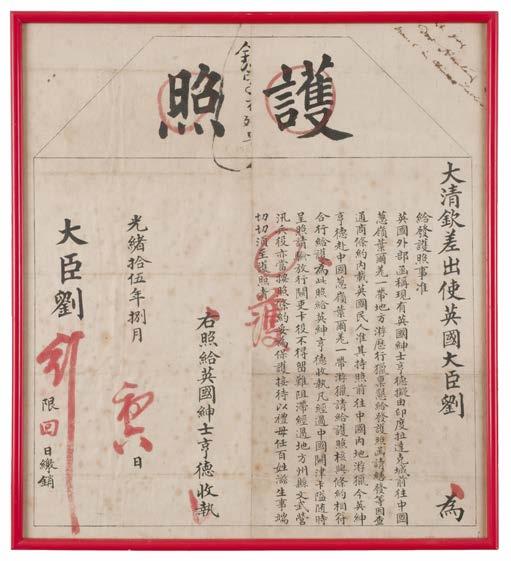 護照
大清欽差出使英國大臣劉 為
給發護照事准
英國外部函稱現有英國紳士亨德擬由印度拉達克城前往中國
蔥嶺葉爾羌一帶地方游歷行獵懇給發護照函請繕發等因查
通商條約內載英國民人准其持照前往中國內地游獵今英紳
亨德赴中國蔥嶺葉爾羌一帶游獵請給護照核與條約相符
合行給護為此照給英紳亨德收執凡經過中國關津卡隘隨時
呈照請驗放行關吏卡役不得留難阻滯經過地方州縣文武營
汛兵役亦當按照條約妥為保護接待以禮毋任百姓滋生事端
切切須至護照者
護
右照給英國紳士亨德收執
光緒拾伍年捌月 日
大臣劉
限回日繳銷